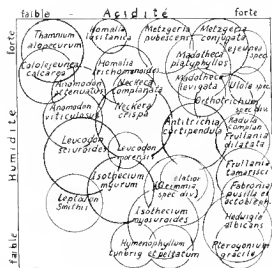 faible - Acidité - forte
forte
Humidité
faible
Thamnium
alopecurum
Homalia
lusitanica
Metzgeria
pubescens
Metzgeria
conjugata
Lejeunea
spec
Cololejeunea
calcarea
Homalia
trichomanoides
Madotheca
platyphyllos
Anomodon
attenuatus
Neckera
complanata
Madotheca
levigata
Ulota spec
Orthotrichum
spec div
Anomodon
viticulosus
Neckera
crispa
Antitrichia
curtipendula
Radula
complan
Frullania
dilatata
Leucodon
sciuroides
Leucodon
morensis
Frullania
tamarisci
Isothecium
myurum
(Grimmia
spec div)
Fabronia
pusilla et
octobleph.
Leptodon
Smithii
Isothecium
myosuroides
Hedwigia
albicans
Hymenophyllum
tunbrig et peltatum
Pterogonium
gracile